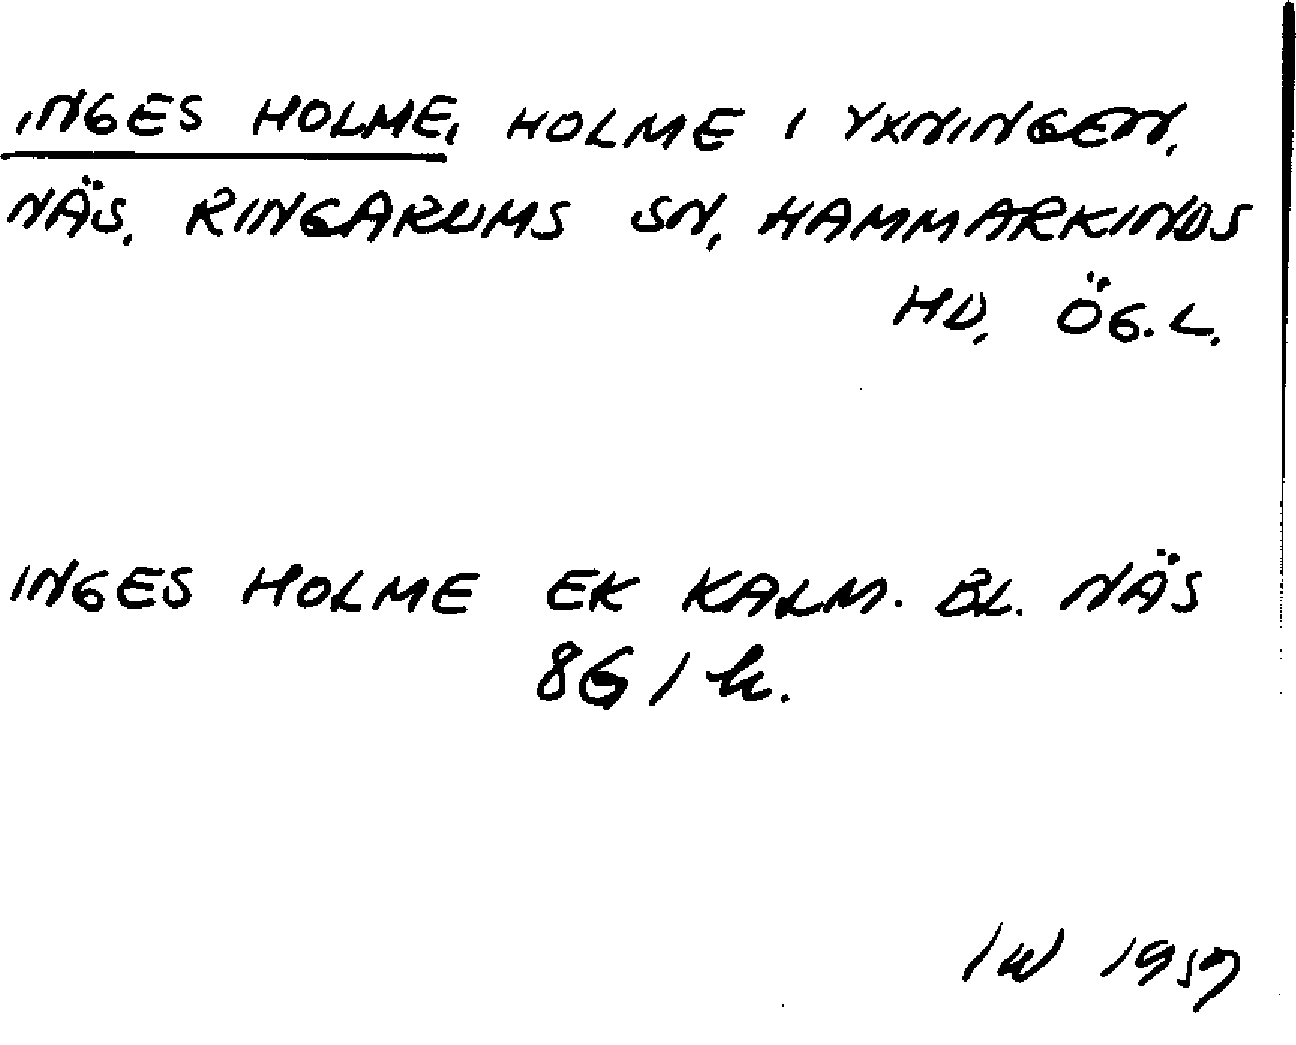 INGES HOLME, HOLME I YXNINGEN,
NÄS, RINGARUMS SN, HAMMARKINDS
HD, ÖG.L.
INGES HOLME EK KALM. BL. NÄS
86 / k.
IW 1957